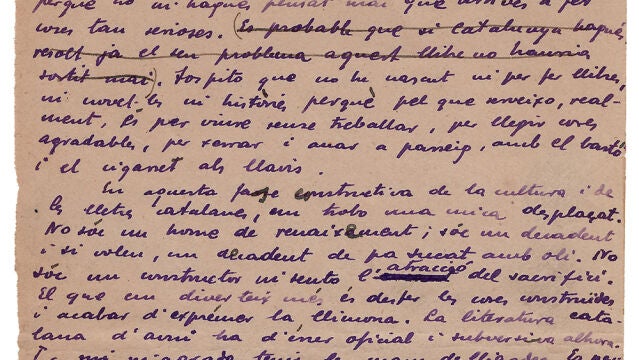 perquè no hi hagués pensat mai que arribés a fer
coses tan serioses. (Es probable que si Catalunya hagués
resolt ja el seu problema aquest llibre no hauria
sortit mai). Sospito que no he nascut ni per fer llibres,
ni novel·les ni històries perquè pel que serveixo, real-
ment, és per viure sense treballar, per llegir coses
agradables, per xerrar i anar a passeig, amb el bastó
i el cigarret als llavis.
En aquesta fase constructiva de la cultura i de
les lletres catalanes, em trobo una mica desplaçat.
No sóc un home de renaixement; sóc un decadent
i si volen, un decadent de pa sucat amb oli. No
sóc un constructor ni sento l'atracció del sacrifici.
El que em diverteix més és desfer les coses construides
i acabar d'esprémer la llimona. La literatura cata-
lana d'avui ha d'ésser oficial i subversiva alhora.
mi m'agrada tenir les mans